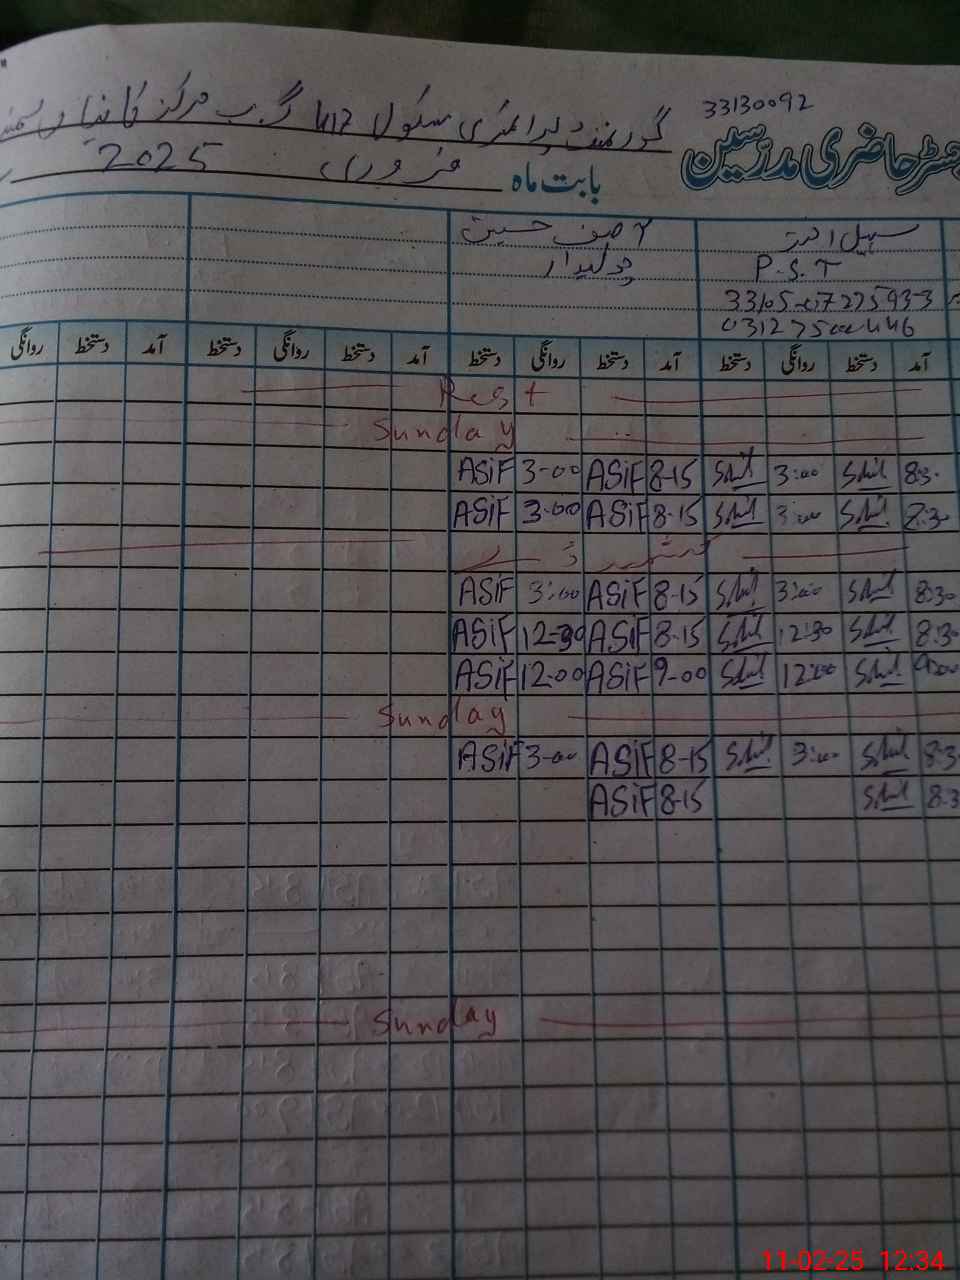 33130092
گورنمنٹ پرائمری سکول 412 گ ب مرکز
رجسٹر حاضری مدرسین
بابت ماہ فروری 2025
سہیل احمد آصف حسین
P.S.T چوکیدار
0312
آمد دستخط روانگی دستخط آمد دستخط روانگی دستخط آمد دستخط روانگی دستخط آمد دستخط روانگی
Rest
Sunday
ASiF 3-00 ASiF 8-15 3:00 8:30
ASiF 3-00 ASiF 8-15 3:00 8:30
کشمیر ڈے
ASiF 3:00 ASiF 8-15 3:00 8:30
ASiF 12-30 ASiF 8-15 12:30 8:30
ASiF 12-00 ASiF 9-00 12:00 9:00
Sunday
ASiF 3-00 ASiF 8-15 3:00 8:3
ASiF 8-15 8:3
Sunday
11-02-25 12:34